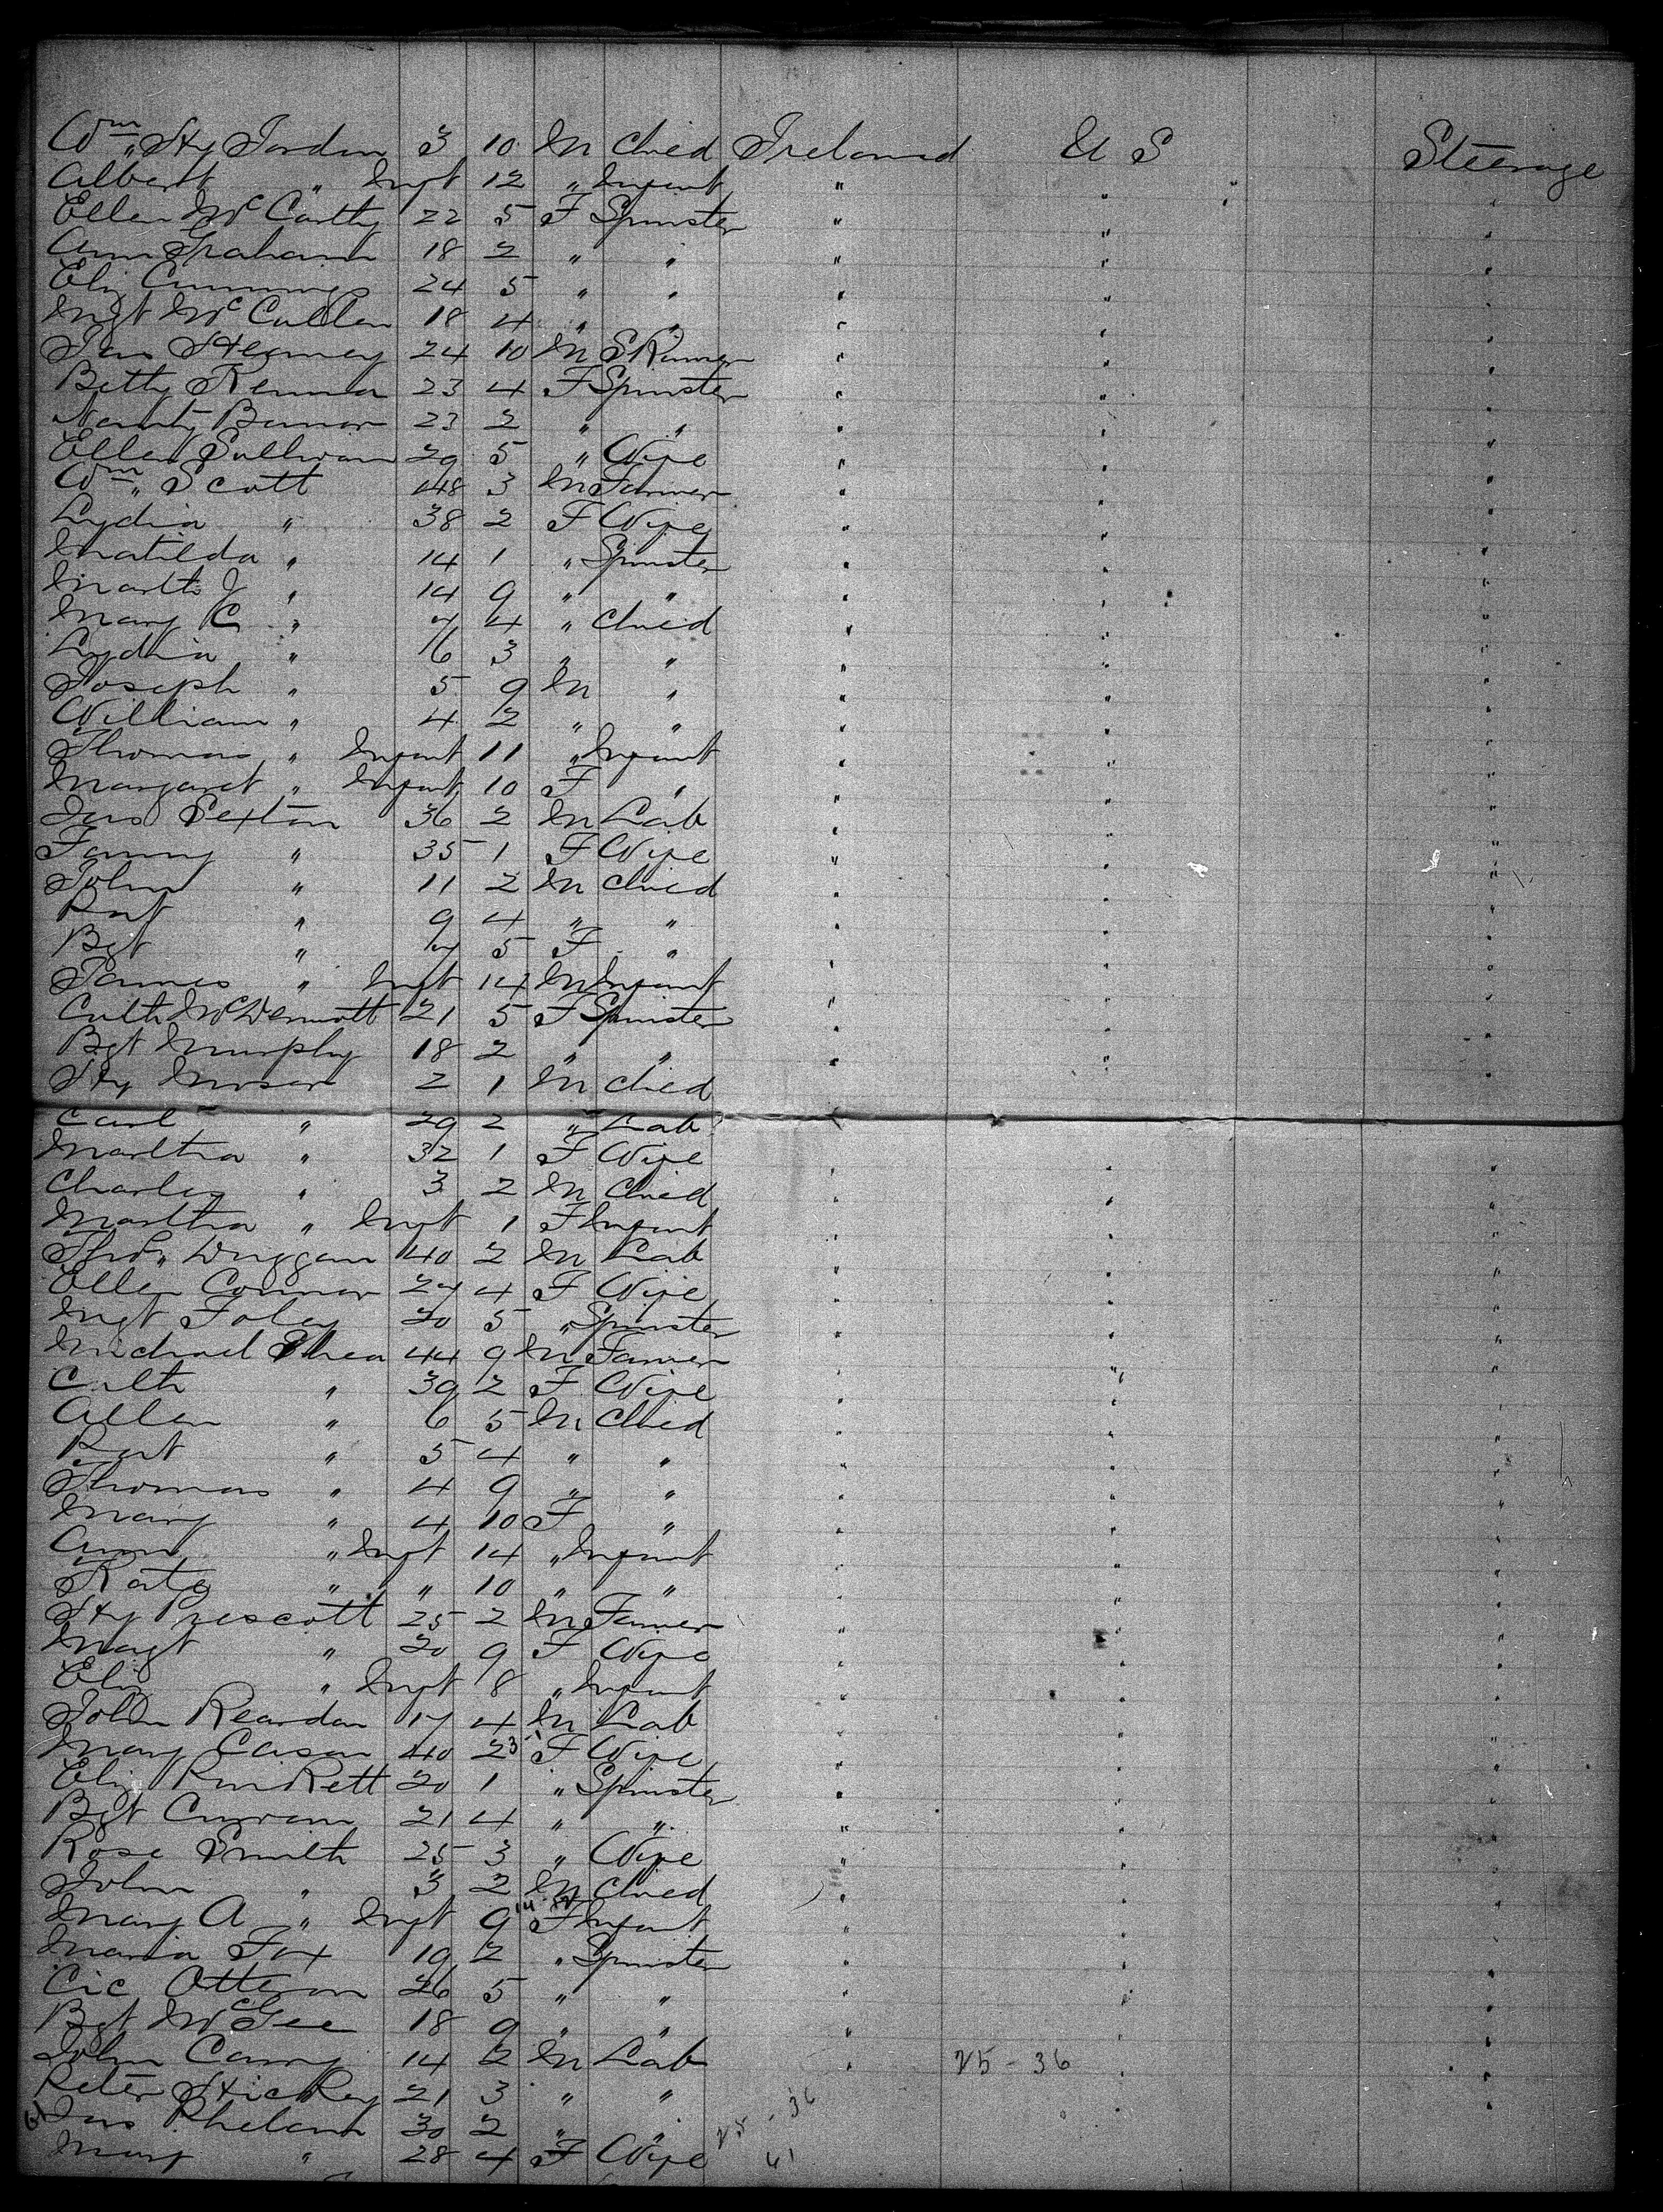 Wm Hy Jordan 3 10 M Child Ireland U S Steerage
Albert " Inft 12 " Infant " " "
Ellen McCarthy 22 5 F Spinster " " "
Ann Graham 18 2 " " " " "
Eliz Cummings 24 5 " " " " "
Mgt McCullen 18 4 " " " " "
Jas Heaney 24 10 M Skinner " " "
Betty Kenna 23 4 F Spinster " " "
23 2 " " " " "
Ellen Sullivan 29 5 " Wife " " "
Wm Scott 48 3 M Farmer " " "
Lydia " 38 2 F Wife " " "
Matilda " 14 1 " Spinster " " "
Marth J " 14 9 " " " " "
Mary C " 7 4 " Child " " "
Lydia " 6 3 " " " " "
Joseph " 5 9 M " " " "
William " 4 2 " " " " "
Thomas " Infant 11 " Infant " " "
Margaret " Infant 10 F " " " "
Jas Sexton 36 2 M Lab " " "
Fanny " 35 1 F Wife " " "
John " 11 2 M Child " " "
Rort " 9 4 " " " " "
Bgt " 7 5 F " " " "
James " Inft 14 M Infant " " "
Cath McDermott 21 5 F Spinster " " "
Bgt Murphy 18 2 " " " " "
Hy 2 1 M Child
Carl " 29 2 " Lab
Martha " 32 1 F Wife " " "
Charley " 3 2 M Child " " "
Martha " Inft 1 F Infant " " "
Thos Duggan 40 2 M Lab " " "
Ellen Connor 27 4 F Wife " " "
Mgt Foley 20 5 " Spinster " " "
Michael Shea 44 9 M Farmer " " "
Cath " 39 2 F Wife " " "
Allen " 6 5 M Child " " "
Rort " 5 4 " " " " "
Thomas " 4 9 " " " " "
Mary " 4 10 F " " " "
Ann " Inft 14 " Infant " " "
Kate " " 10 " " " " "
Hy Prescott 25 2 M Farmer " " "
Magt " 20 9 F Wife " " "
Eliz " Inft 8 " Infant " " "
John Reardan 17 4 M Lab " " "
Mary Casan 40 2 F Wife " " "
Eliz Punkett 20 1 " Spinster " " "
Bgt Curran 21 4 " " " " "
Rose Smith 25 3 " Wife " " "
John " 3 2 M Child " " "
Mary A " Inft 9 F Infant " " "
Maria Fox 19 2 " Spinster " " "
Cic Otterson 26 5 " " " " "
Bgt McGee 18 9 " " " " "
John Canny 14 2 M Lab " 25-36 " "
Peter Hickey 21 3 " " " "
61 Jas Phelan 30 2 " " 25-36 " "
Mary " 28 4 F Wife 61